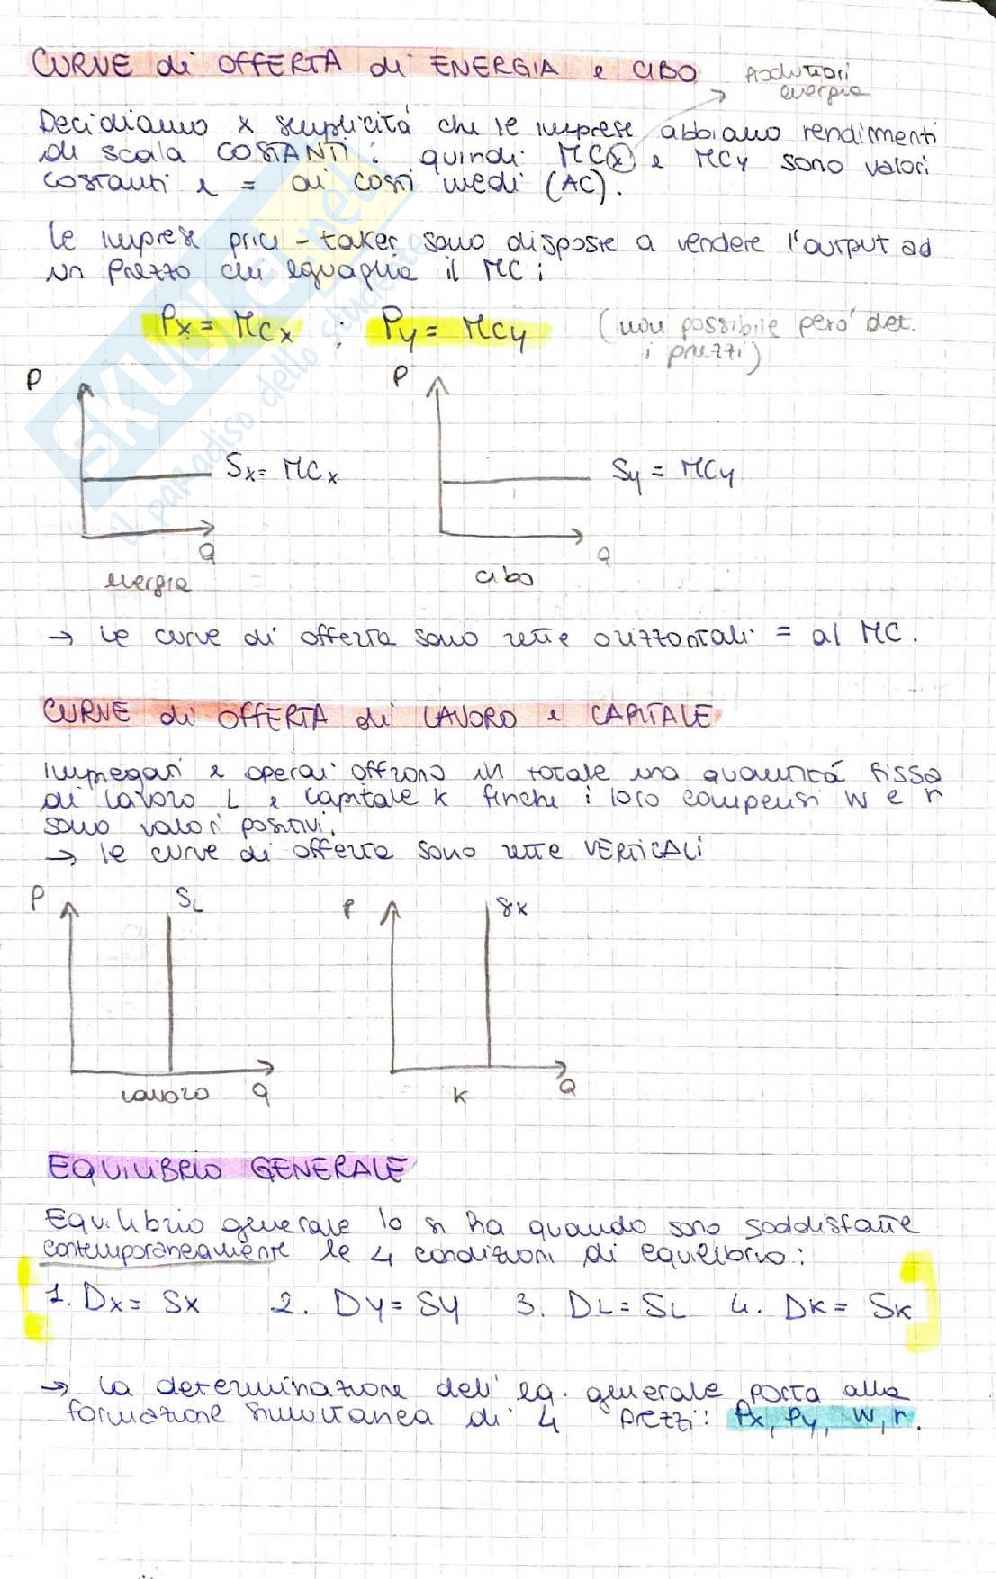 CURVE di OFFERTA di ENERGIA e CIBO
Produttori
energia
Decidiamo x semplicitá che le imprese abbiano rendimenti
di scala COSTANTI: quindi MCx e MCy sono valori
costanti e = ai costi medi (AC).
Le imprese price-taker sono disposte a vendere l'output ad
un prezzo che eguaglia il MC:
Px = MCx ; Py = MCy (non possibile peró det.
i prezzi)
P
P
Sx = MCx
Sy = MCy
Q
Q
energia
cibo
→ Le curve di offerta sono rette orizzontali = al MC.
CURVE di OFFERTA di LAVORO e CAPITALE
Impiegati e operai offrono in totale una quantitá fissa
di lavoro L e capitale K finché i loro compensi w e r
sono valori positivi.
→ le curve di offerta sono rette VERTICALI
P SL
P SK
lavoro Q
K Q
EQUILIBRIO GENERALE
Equilibrio generale lo si ha quando sono soddisfatte
contemporaneamente le 4 condizioni di equilibrio:
1. Dx = Sx 2. Dy = Sy 3. DL = SL 4. DK = SK
→ La determinazione dell'eq. generale porta alla
formazione simultanea di 4 prezzi: Px, Py, w, r.
SKUOLA.net
il paradiso dello studente